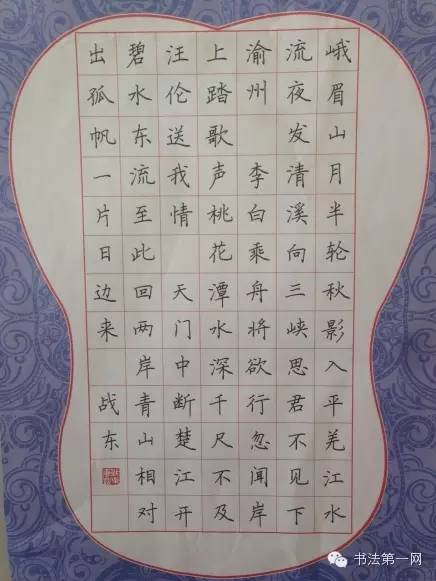 峨眉山月半轮秋影入平羌江水
流夜发清溪向三峡思君不见下
渝州 李白乘舟将欲行忽闻岸
上踏歌声桃花潭水深千尺不及
汪伦送我情 天门中断楚江开
碧水东流至此回两岸青山相对
出孤帆一片日边来 战东
书法第一网